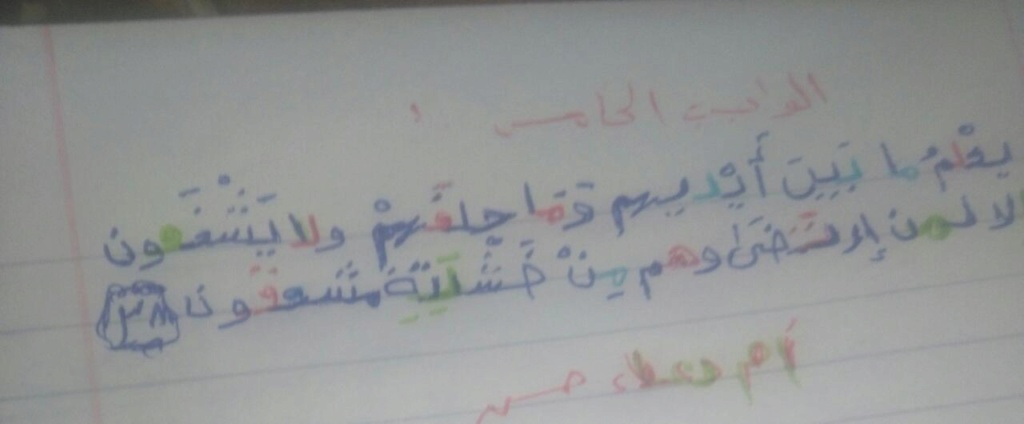 الواجب الخامس :
يعْلمُ ما بَيِنَ أَيْديهم وَمَا حلفَهمْ ولا يَشْفَعون
الا لمن إرتضَىَ وهم مِنْ خَشْيَتِهِ مشعقون ٢٨
أم دعاء حسن